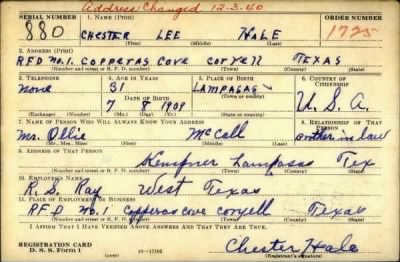 Address Changed 12-3-40
SERIAL NUMBER 1. NAME (Print) ORDER NUMBER
880 CHESTER LEE HALE 1725
(First) (Middle) (Last)
2. ADDRESS (Print)
RFD NO.1. COPPERAS COVE CORYELL TEXAS
(Number and street or R. F. D. number) (Town) (County) (State)
3. TELEPHONE 4. AGE IN YEARS 5. PLACE OF BIRTH 6. COUNTRY OF CITIZENSHIP
None 31 LAMPASAS U.S.A.
DATE OF BIRTH (Town or county)
7 8 1909
(Mo.) (Day) (Yr.) (State or country)
7. NAME OF PERSON WHO WILL ALWAYS KNOW YOUR ADDRESS 8. RELATIONSHIP OF THAT PERSON
Mr. Ollie McCall Brother in law
(Mr., Mrs., Miss) (First) (Middle) (Last)
9. ADDRESS OF THAT PERSON
Kempner Lampasas Tex
(Number and street or R. F. D. number) (Town) (County) (State)
10. EMPLOYER'S NAME
R. S. Ray West Texas
11. PLACE OF EMPLOYMENT OR BUSINESS
RFD No. 1 Copperas Cove Coryell Texas
(Number and street or R. F. D. number) (Town) (County) (State)
I AFFIRM THAT I HAVE VERIFIED ABOVE ANSWERS AND THAT THEY ARE TRUE.
REGISTRATION CARD
D. S. S. Form 1 16-17105 Chester Hale
(Registrant's signature)